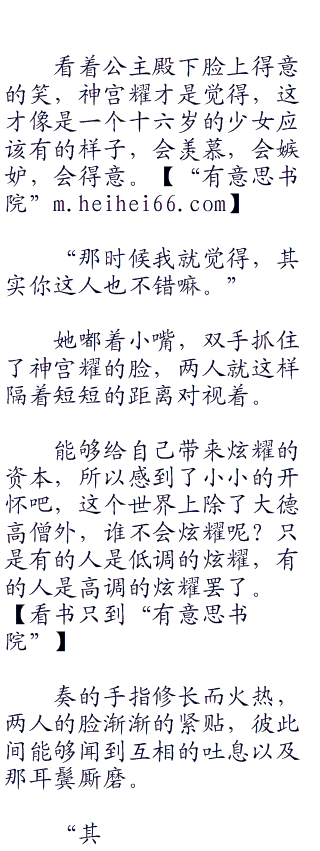 看着公主殿下脸上得意
的笑，神宫耀才是觉得，这
才像是一个十六岁的少女应
该有的样子，会羡慕，会嫉
妒，会得意。【“有意思书
院”m.heihei66.com】
“那时候我就觉得，其
实你这人也不错嘛。”
她嘟着小嘴，双手抓住
了神宫耀的脸，两人就这样
隔着短短的距离对视着。
能够给自己带来炫耀的
资本，所以感到了小小的开
怀吧，这个世界上除了大德
高僧外，谁不会炫耀呢？只
是有的人是低调的炫耀，有
的人是高调的炫耀罢了。
【看书只到“有意思书
院”】
奏的手指修长而火热，
两人的脸渐渐的紧贴，彼此
间能够闻到互相的吐息以及
那耳鬓厮磨。
“其